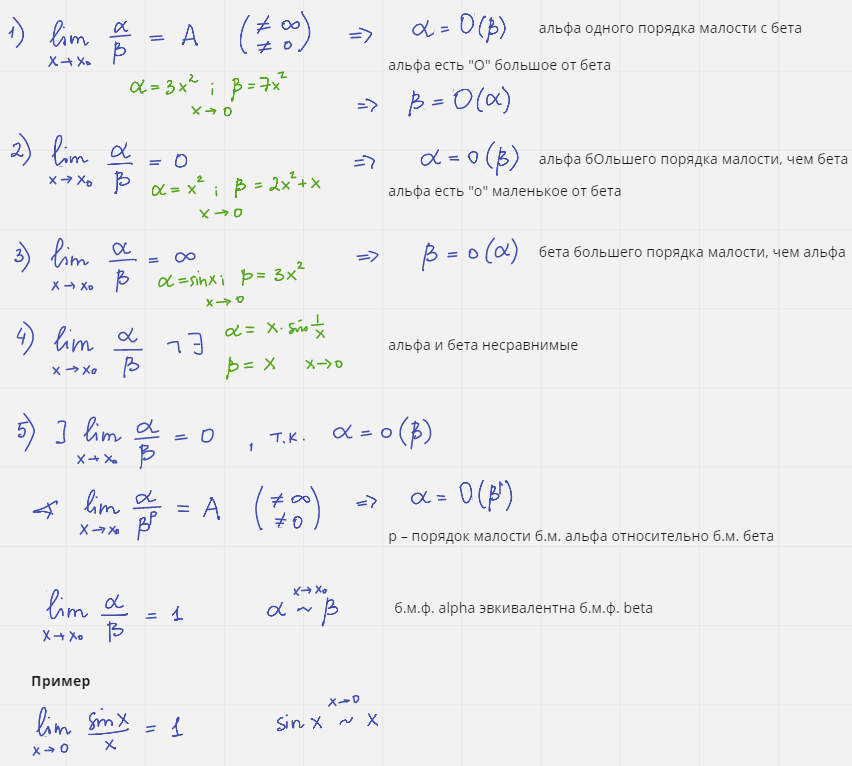 1) lim x→x₀ α/β = A (≠ ∞ ≠ 0) => α = O(β) альфа одного порядка малости с бета
альфа есть "О" большое от бета
α = 3x² ; β = 7x² x→0
=> β = O(α)
2) lim x→x₀ α/β = 0 => α = o(β) альфа бОльшего порядка малости, чем бета
α = x² ; β = 2x² + x x→0
альфа есть "о" маленькое от бета
3) lim x→x₀ α/β = ∞ => β = o(α) бета большего порядка малости, чем альфа
α = sin x ; β = 3x² x→0
4) lim x→x₀ α/β ¬∃ α = x · sin 1/x
β = x x→0
альфа и бета несравнимые
5) ] lim x→x₀ α/β = 0 , т.к. α = o(β)
∢ lim x→x₀ α/βᵖ = A (≠ ∞ ≠ 0) => α = O(βᵖ)
p – порядок малости б.м. альфа относительно б.м. бета
lim x→x₀ α/β = 1 α ~ β x→x₀ б.м.ф. alpha эвкивалентна б.м.ф. beta
Пример
lim x→0 sin x/x = 1 sin x ~ x x→0